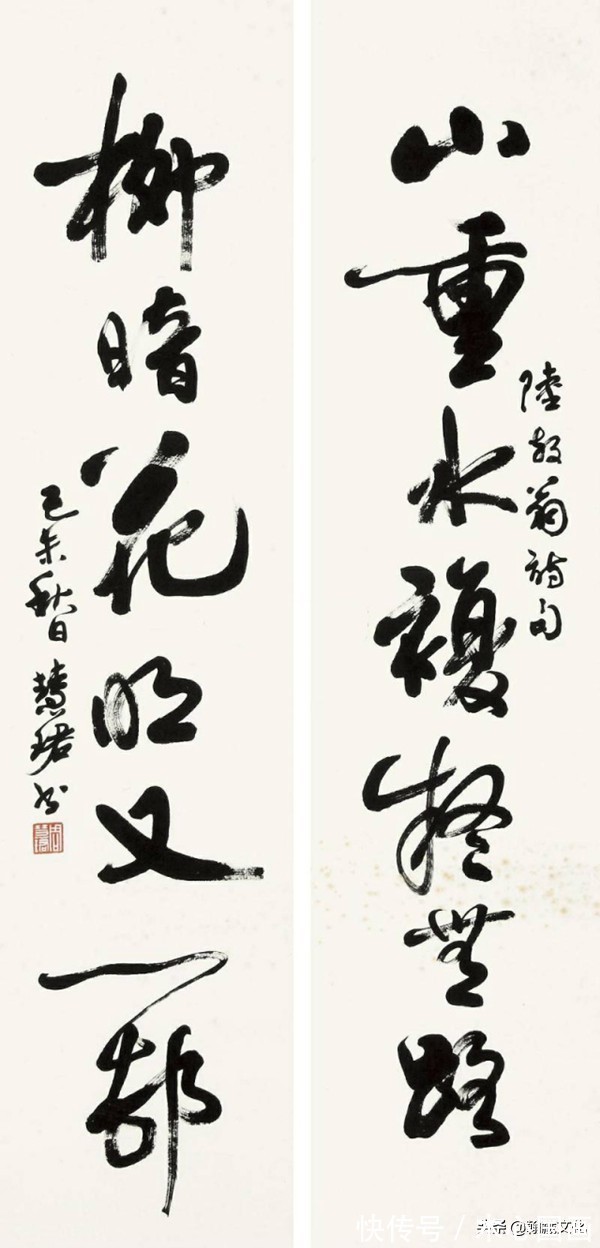 山重水複疑無路
陸放翁詩句
柳暗花明又一邨
己未秋日 慧珺書
快传号 /